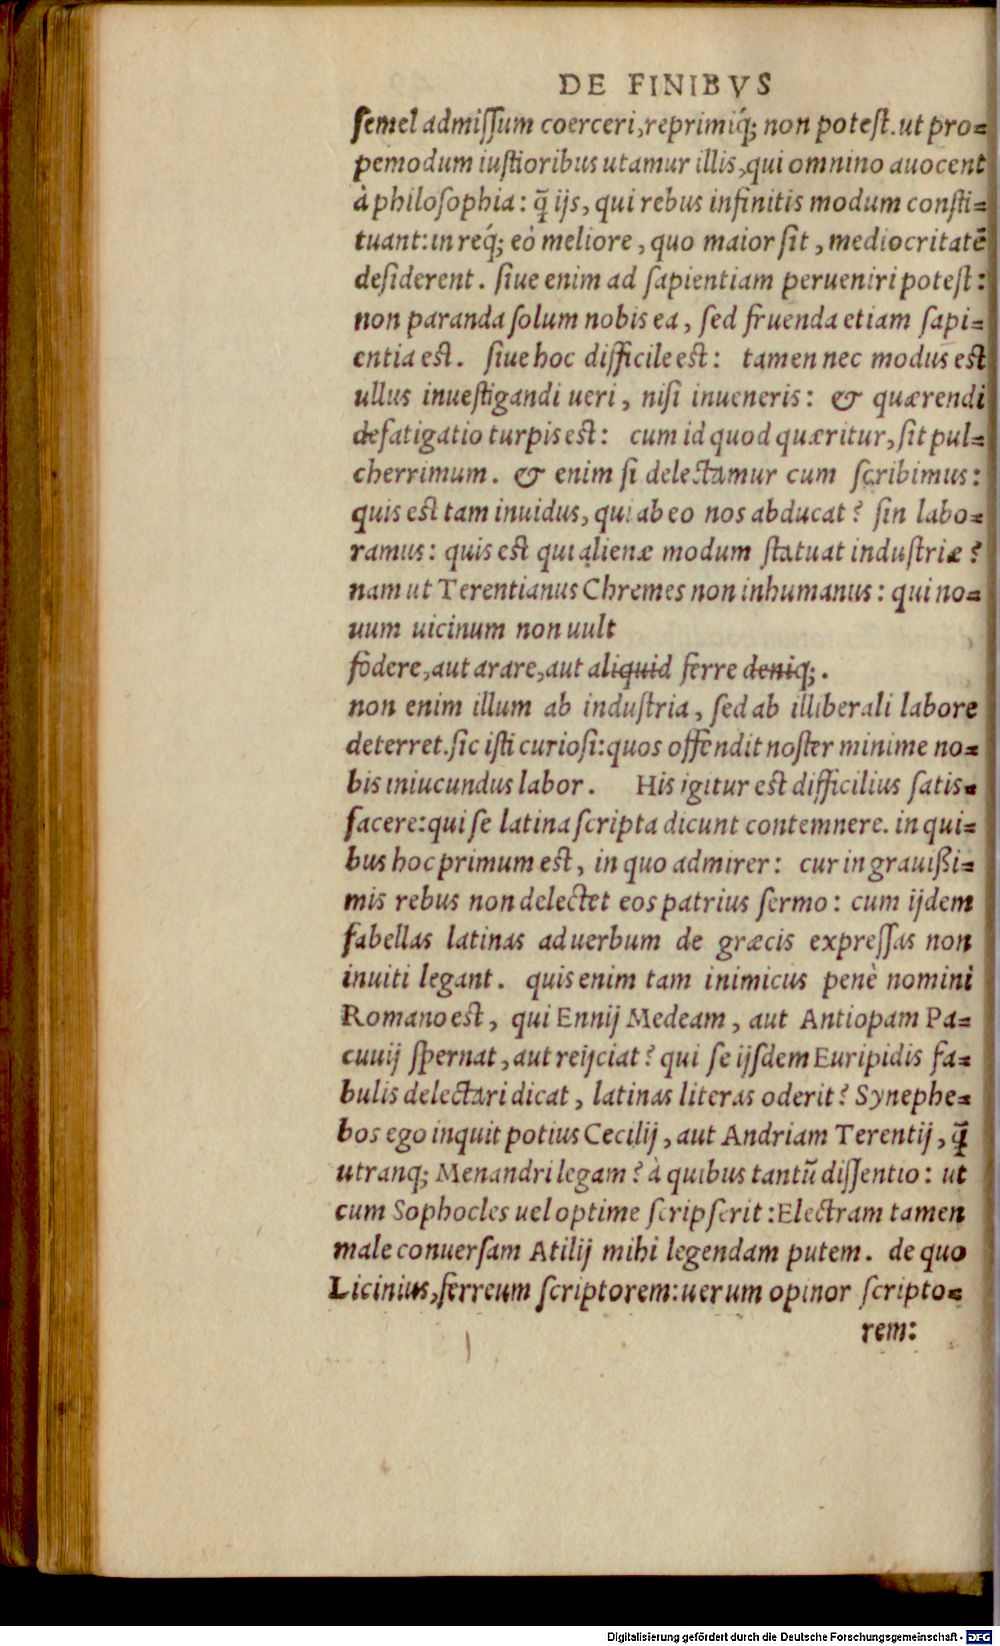 DE FINIBVS
ſemel admiſſum coerceri, reprimiq́; non poteſt. ut pro=
pemodum iuſtioribus utamur illis, qui omnino auocent
à philoſophia: q̃ ijs, qui rebus infinitis modum conſti=
tuant: in req́; eò meliore, quo maior ſit, mediocritatẽ
deſiderent. ſiue enim ad ſapientiam perueniri poteſt:
non paranda ſolum nobis ea, ſed fruenda etiam ſapi=
entia est. ſiue hoc difficile est: tamen nec modus est
ullus inueſtigandi ueri, niſi inueneris: & quærendi
defatigatio turpis est: cum id quod quæritur, ſit pul=
cherrimum. & enim ſi delectamur cum ſcribimus:
quis est tam inuidus, qui ab eo nos abducat? ſin labo=
ramus: quis est qui alienæ modum ſtatuat induſtriæ?
nam ut Terentianus Chremes non inhumanus: qui no=
uum uicinum non uult
fodere, aut arare, aut aliquid ferre deniq;.
non enim illum ab induſtria, ſed ab illiberali labore
deterret. ſic iſti curioſi: quos offendit noſter minime no=
bis iniucundus labor. His igitur est difficilius ſatis=
facere: qui ſe latina ſcripta dicunt contemnere. in qui=
bus hoc primum est, in quo admirer: cur in grauißi=
mis rebus non delectet eos patrius ſermo: cum ijdem
fabellas latinas ad uerbum de græcis expreſſas non
inuiti legant. quis enim tam inimicus penè nomini
Romano est, qui Ennij Medeam, aut Antiopam Pa=
cuuij ſpernat, aut reijciat? qui ſe ijſdem Euripidis fa=
bulis delectari dicat, latinas literas oderit? Synephe=
bos ego inquit potius Cecilij, aut Andriam Terentij, q̃
utranq; Menandri legam? à quibus tantũ diſſentio: ut
cum Sophocles uel optime ſcripſerit: Electram tamen
male conuerſam Atilij mihi legendam putem. de quo
Licinius, ferreum ſcriptorem: uerum opinor ſcripto=
rem:
Digitalisierung gefördert durch die Deutsche Forschungsgemeinschaft - DFG